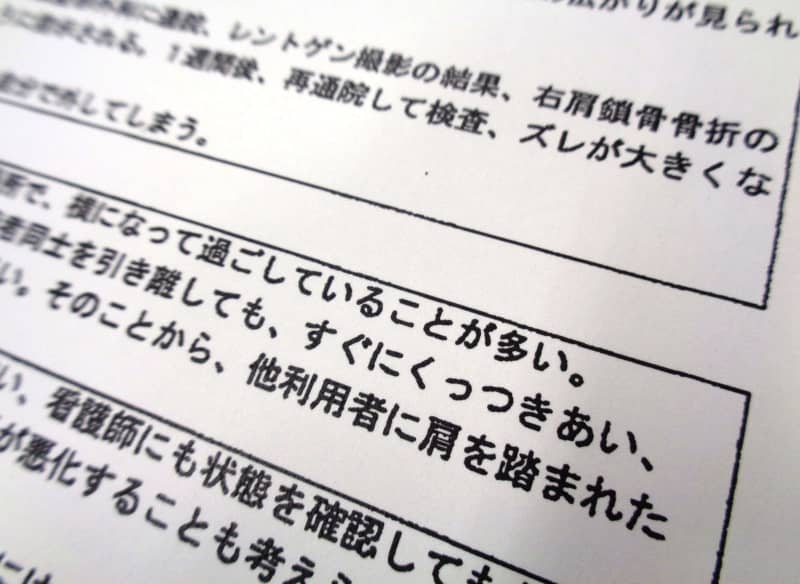 広がりが見られ
に通院、レントゲン撮影の結果、右肩鎖骨骨折の
に指示される。1週間後、再通院して検査、ズレが大きくな
自分で外してしまう。
で、横になって過ごしていることが多い。
者同士を引き離しても、すぐにくっつきあい、
い。そのことから、他利用者に肩を踏まれた
い、看護師にも状態を確認しても
が悪化することも考え
には